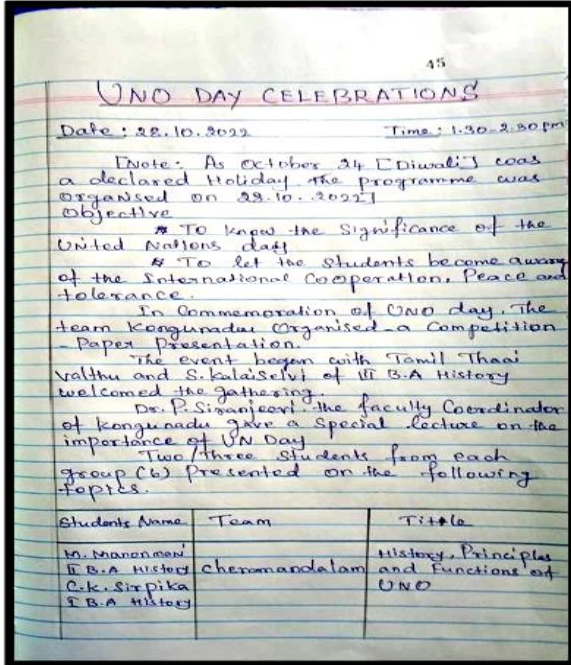 45
UNO DAY CELEBRATIONS
Date : 28.10.2022 Time : 1.30-2.30 pm
[Note : As October 24 [Diwali] was
a declared Holiday the programme was
organised on 28.10.2022]
Objective
* To know the Significance of the
United Nations day
* To let the students become aware
of the International Cooperation, Peace and
tolerance.
In Commemoration of UNO day, The
team Kongunadu Organised a Competition
- Paper Presentation.
The event began with Tamil Thaai
valthu and S. Kalaiselvi of III B.A History
welcomed the gathering.
Dr. P. Siranjeevi the faculty Coordinator
of Kongunadu gave a Special lecture on the
importance of UN Day
Two/three students from each
group (6) Presented on the following
topics.
Students Name Team Tittle
M. Manonmani History, Principles
II B.A History cheramandalam and Functions of
C.K. Sirpika UNO
I B.A History